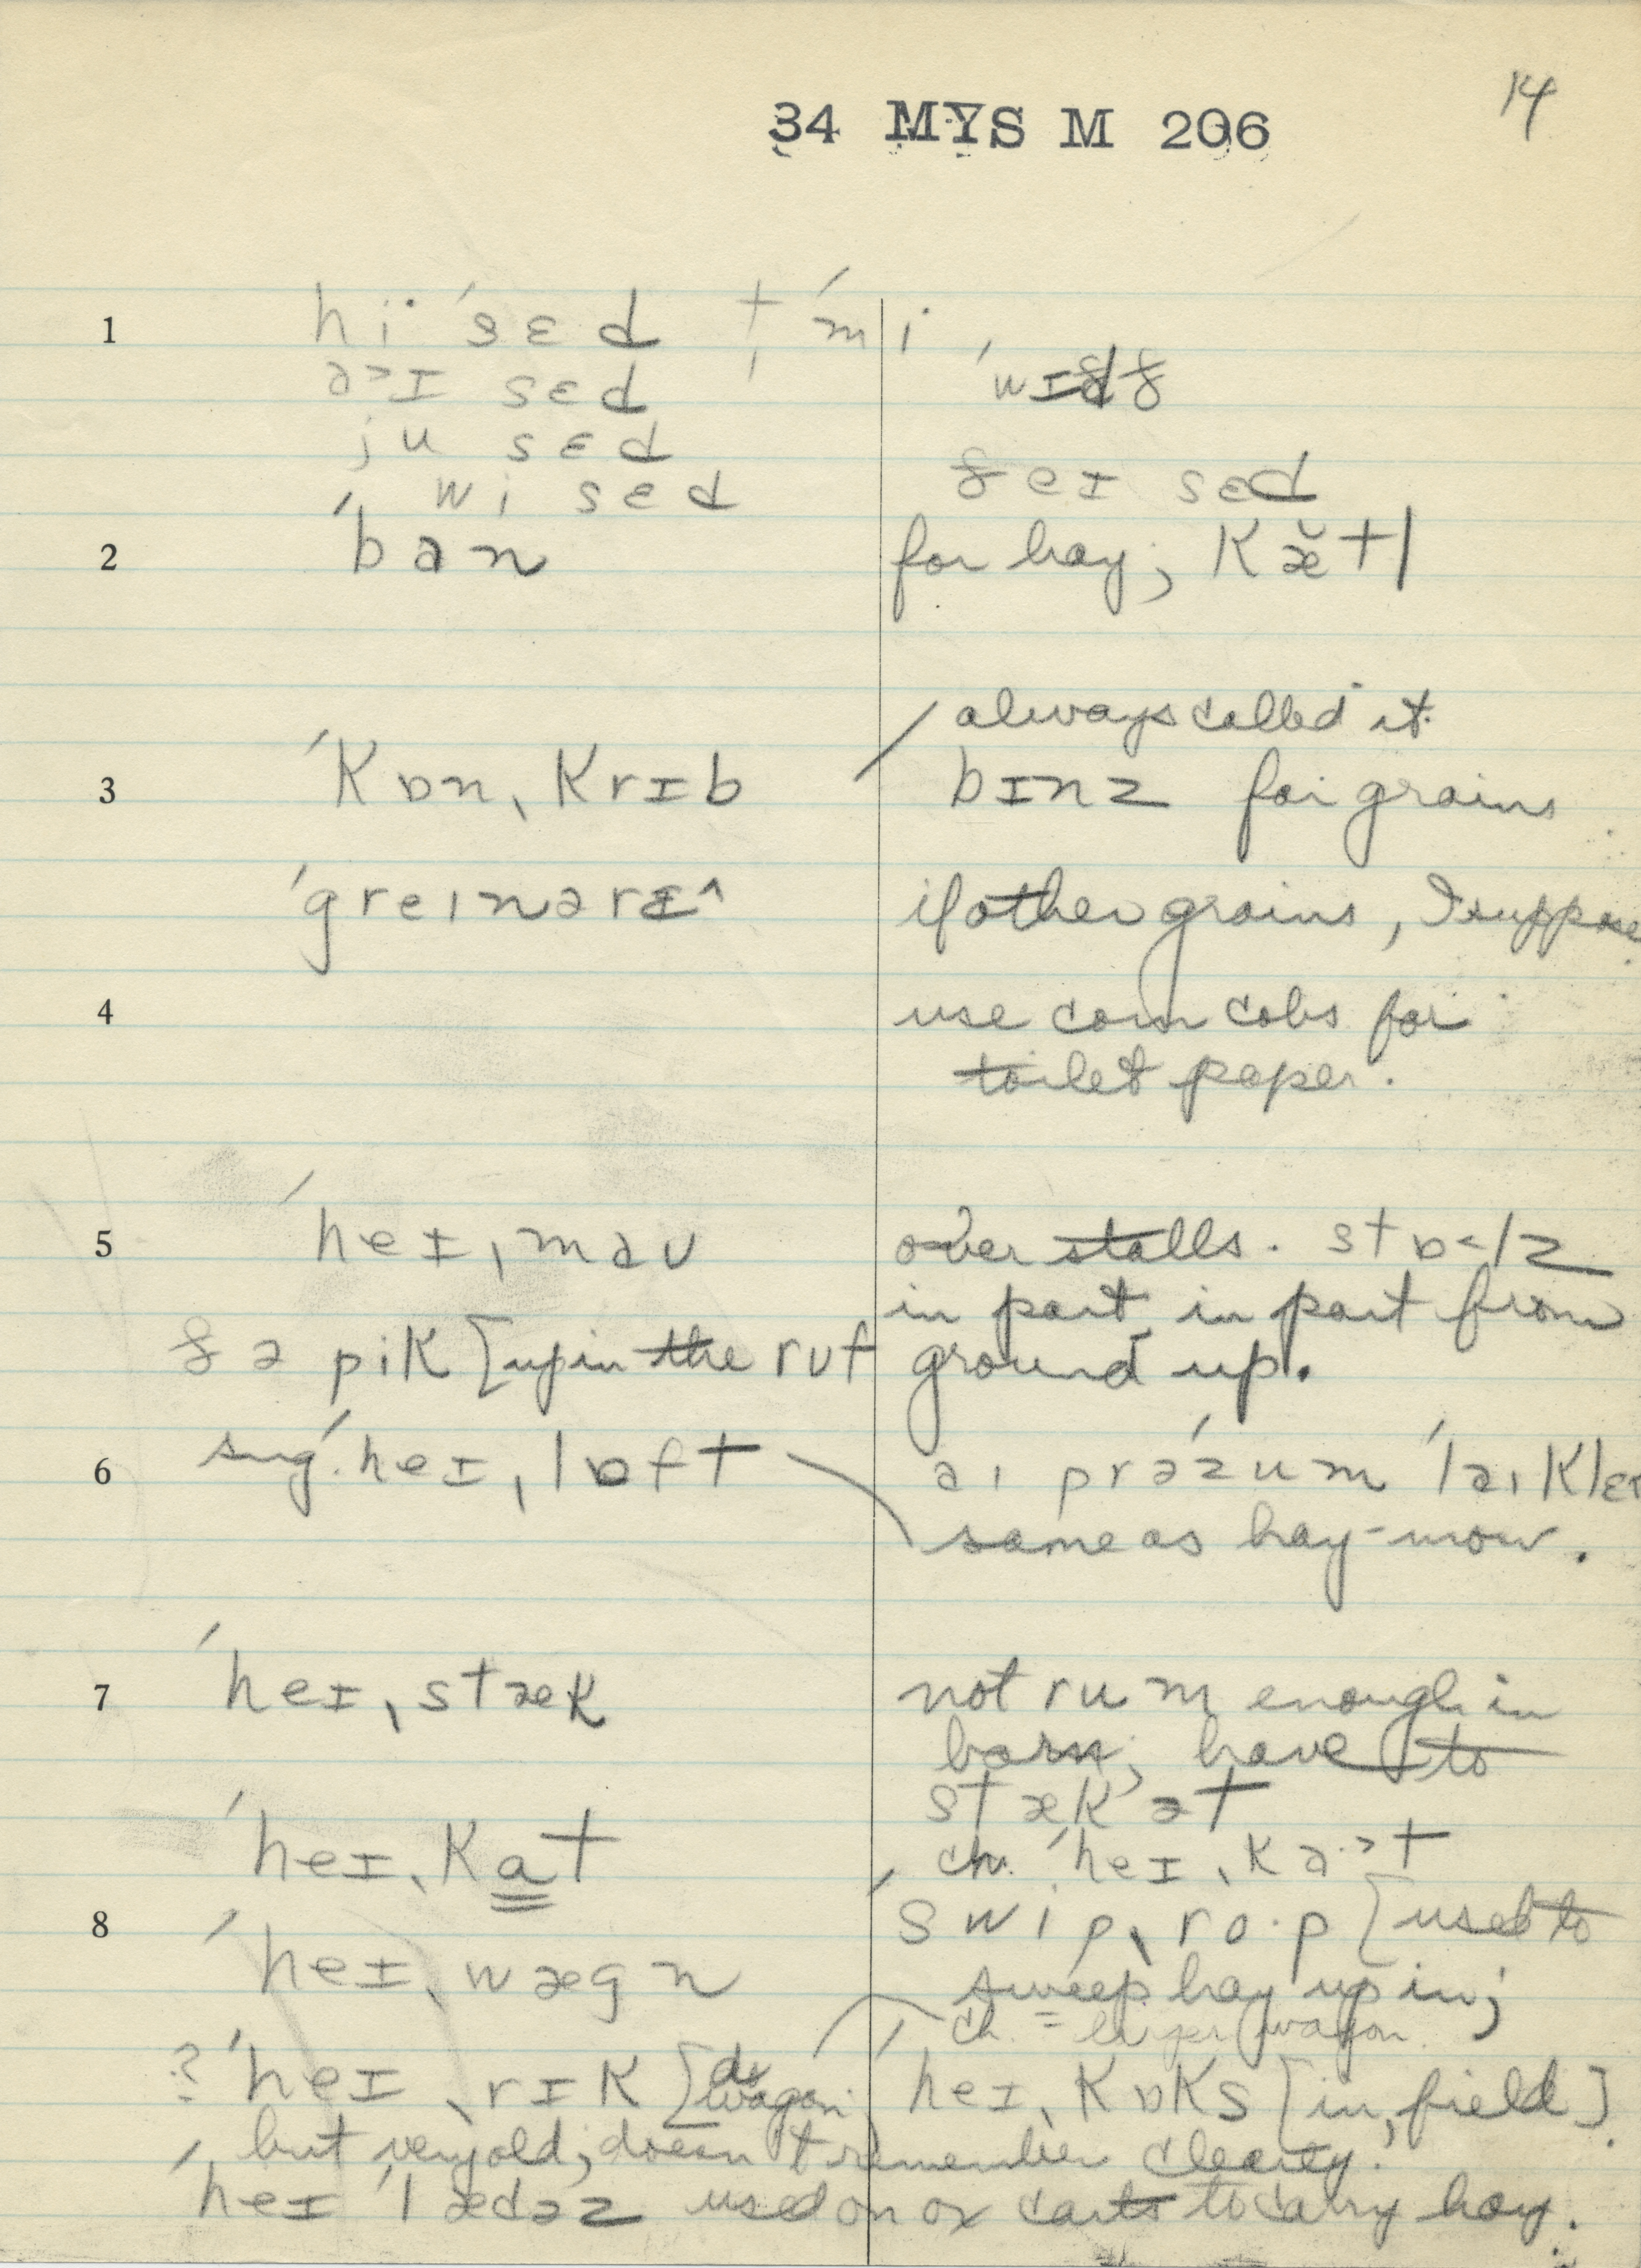 14
34 MYS M 206
1 hi· ˈsɛd t ˈm i·
a˃ɪ sɛd ˈwɪð
ju sɛd
wi sɛd ðeɪ sɛd
2 ˈban for hay; kæ̆tl
always called it
3 ˈkɒnˌkrɪb bɪnz for grains
ˈgreɪnərɪ^ if other grains, I suppose
4 use corn cobs for
toilet paper.
5 ˈheɪˌmaʊ over stalls. stɒ˂lz
in part, in part from
ðə pik [up in the ruf ground up.
6 sug. ˈheɪˌlɒft aɪ prəˈzum ˈlaɪklɪ
same as hay-mow.
7 ˈheɪˌstæk not rum enough in
barn; have to
stæk ət
ˈheɪˌkat ch. ˈheɪˌka·˃t
8 ˈswipˌro·p [used to
ˈheɪˌwægn sweep hay up in;
ch. = larger wagon
? ˈheɪˌrɪk [ wagon ˈheɪˌkɒks [in field]
but very old; doesn't remember clearly.
ˈheɪ ˈlædəz used on ox carts to carry hay.